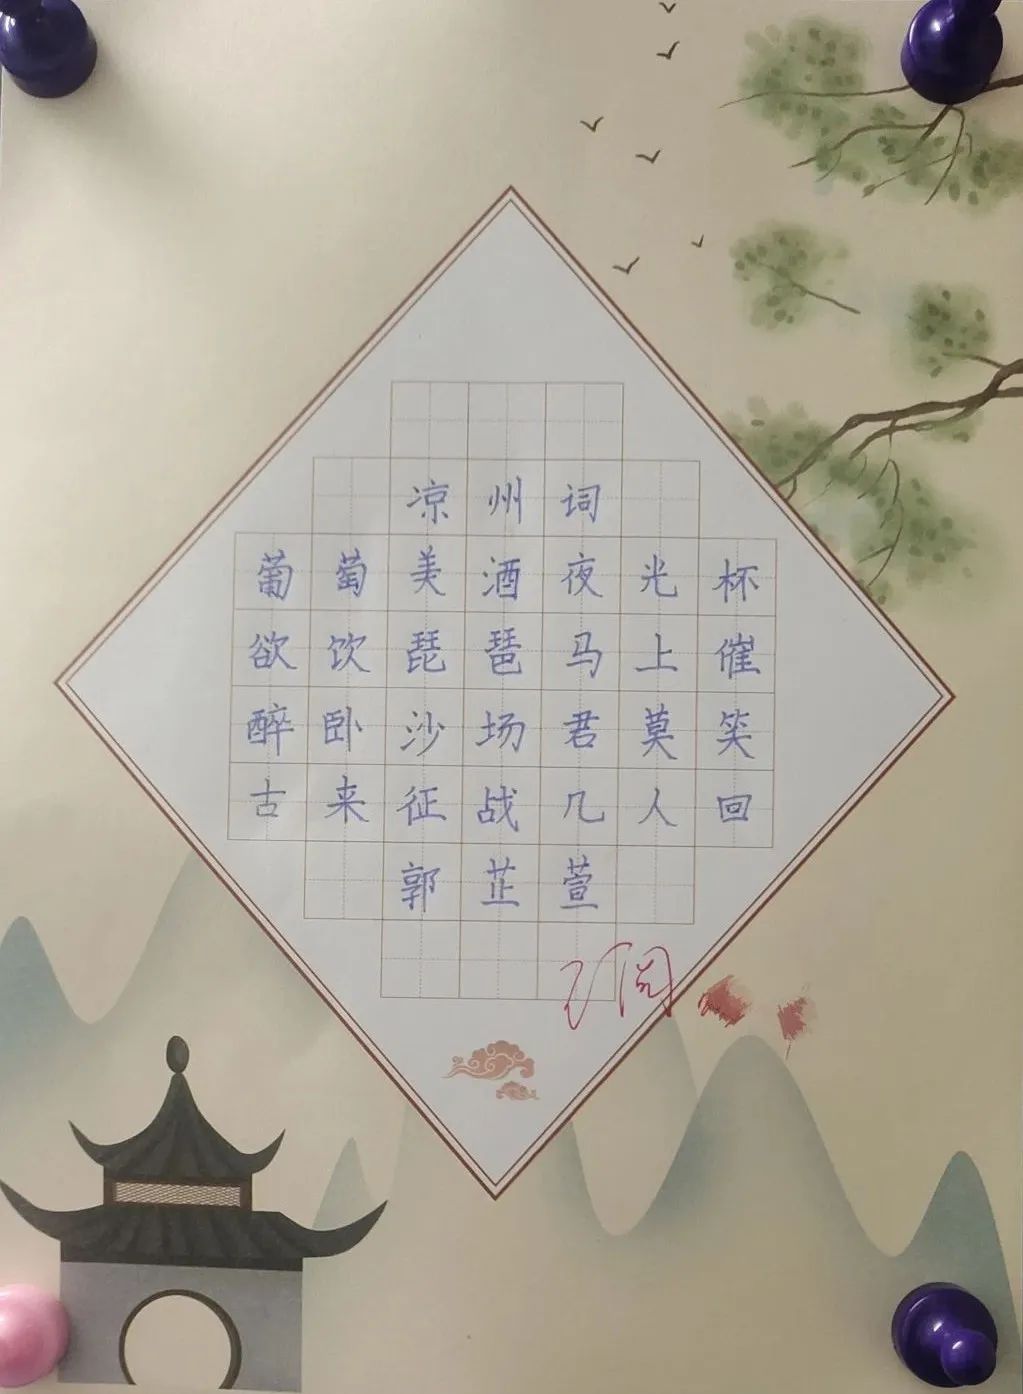 凉州词
葡萄美酒夜光杯
欲饮琵琶马上催
醉卧沙场君莫笑
古来征战几人回
郭芷萱